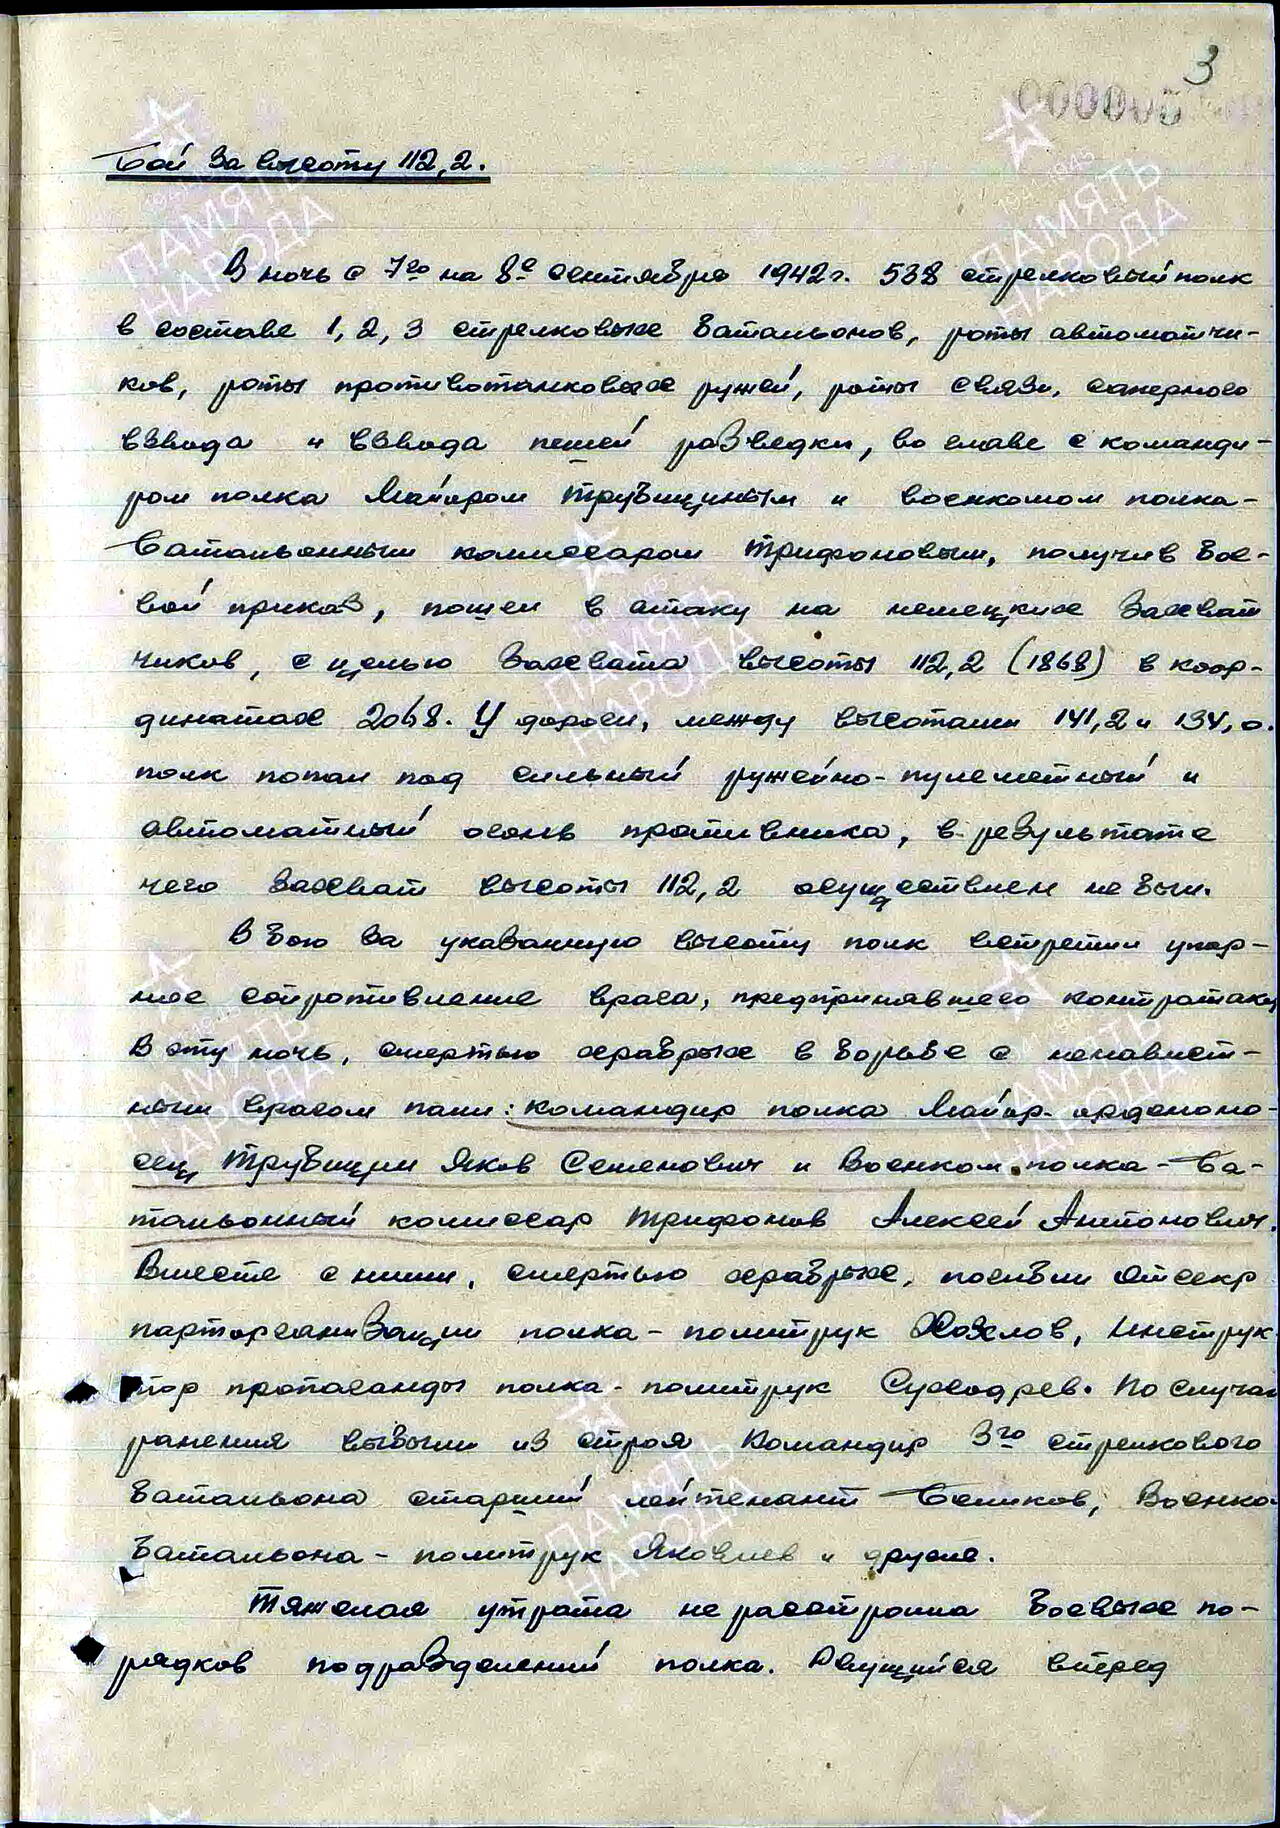 3
Бой за высоту 112,2.
В ночь с 7го на 8е сентября 1942г. 538 стрелковый полк
в составе 1, 2, 3 стрелковых батальонов, роты автоматчи-
ков, роты противотанковых ружей, роты связи, саперного
взвода и взвода пешей разведки, во главе с команди-
ром полка Майором Трубициным и военкомом полка-
Батальонным комиссаром Трифоновым, получив бое-
вой приказ, пошел в атаку на немецких захват
чиков, с целью захвата высоты 112,2 (1868) в коор-
динатах 2068. У дороги, между высотами 141,2 и 134,0.
полк попал под сильный ружейно-пулеметный и
автоматный огонь противника, в результате
чего захват высоты 112,2 осуществлен не был.
В бою за указанную высоту полк встретил упор-
ное сопротивление врага, предпринявшего контратаку
В эту ночь, смертью храбрых в борьбе с ненавист-
ным врагом пали: командир полка Майор-орденоно-
сец Трубицин Яков Семенович и Военком полка - Ба-
тальонный комиссар Трифонов Алексей Антонович.
Вместе с ними, смертью храбрых, погибли Отсекр
парторганизации полка - политрук Хохлов, Инструк
тор пропаганды полка - политрук Суходрев. По случаю
ранения выбыли из строя Командир 3го стрелкового
батальона старший лейтенант Беликов, Военком
батальона - политрук Яковлев и другие.
Тяжелая утрата не расстроила боевых по-
рядков подразделений полка. Рвущийся вперед
ПАМЯТЬ
НАРОДА
1941-1945